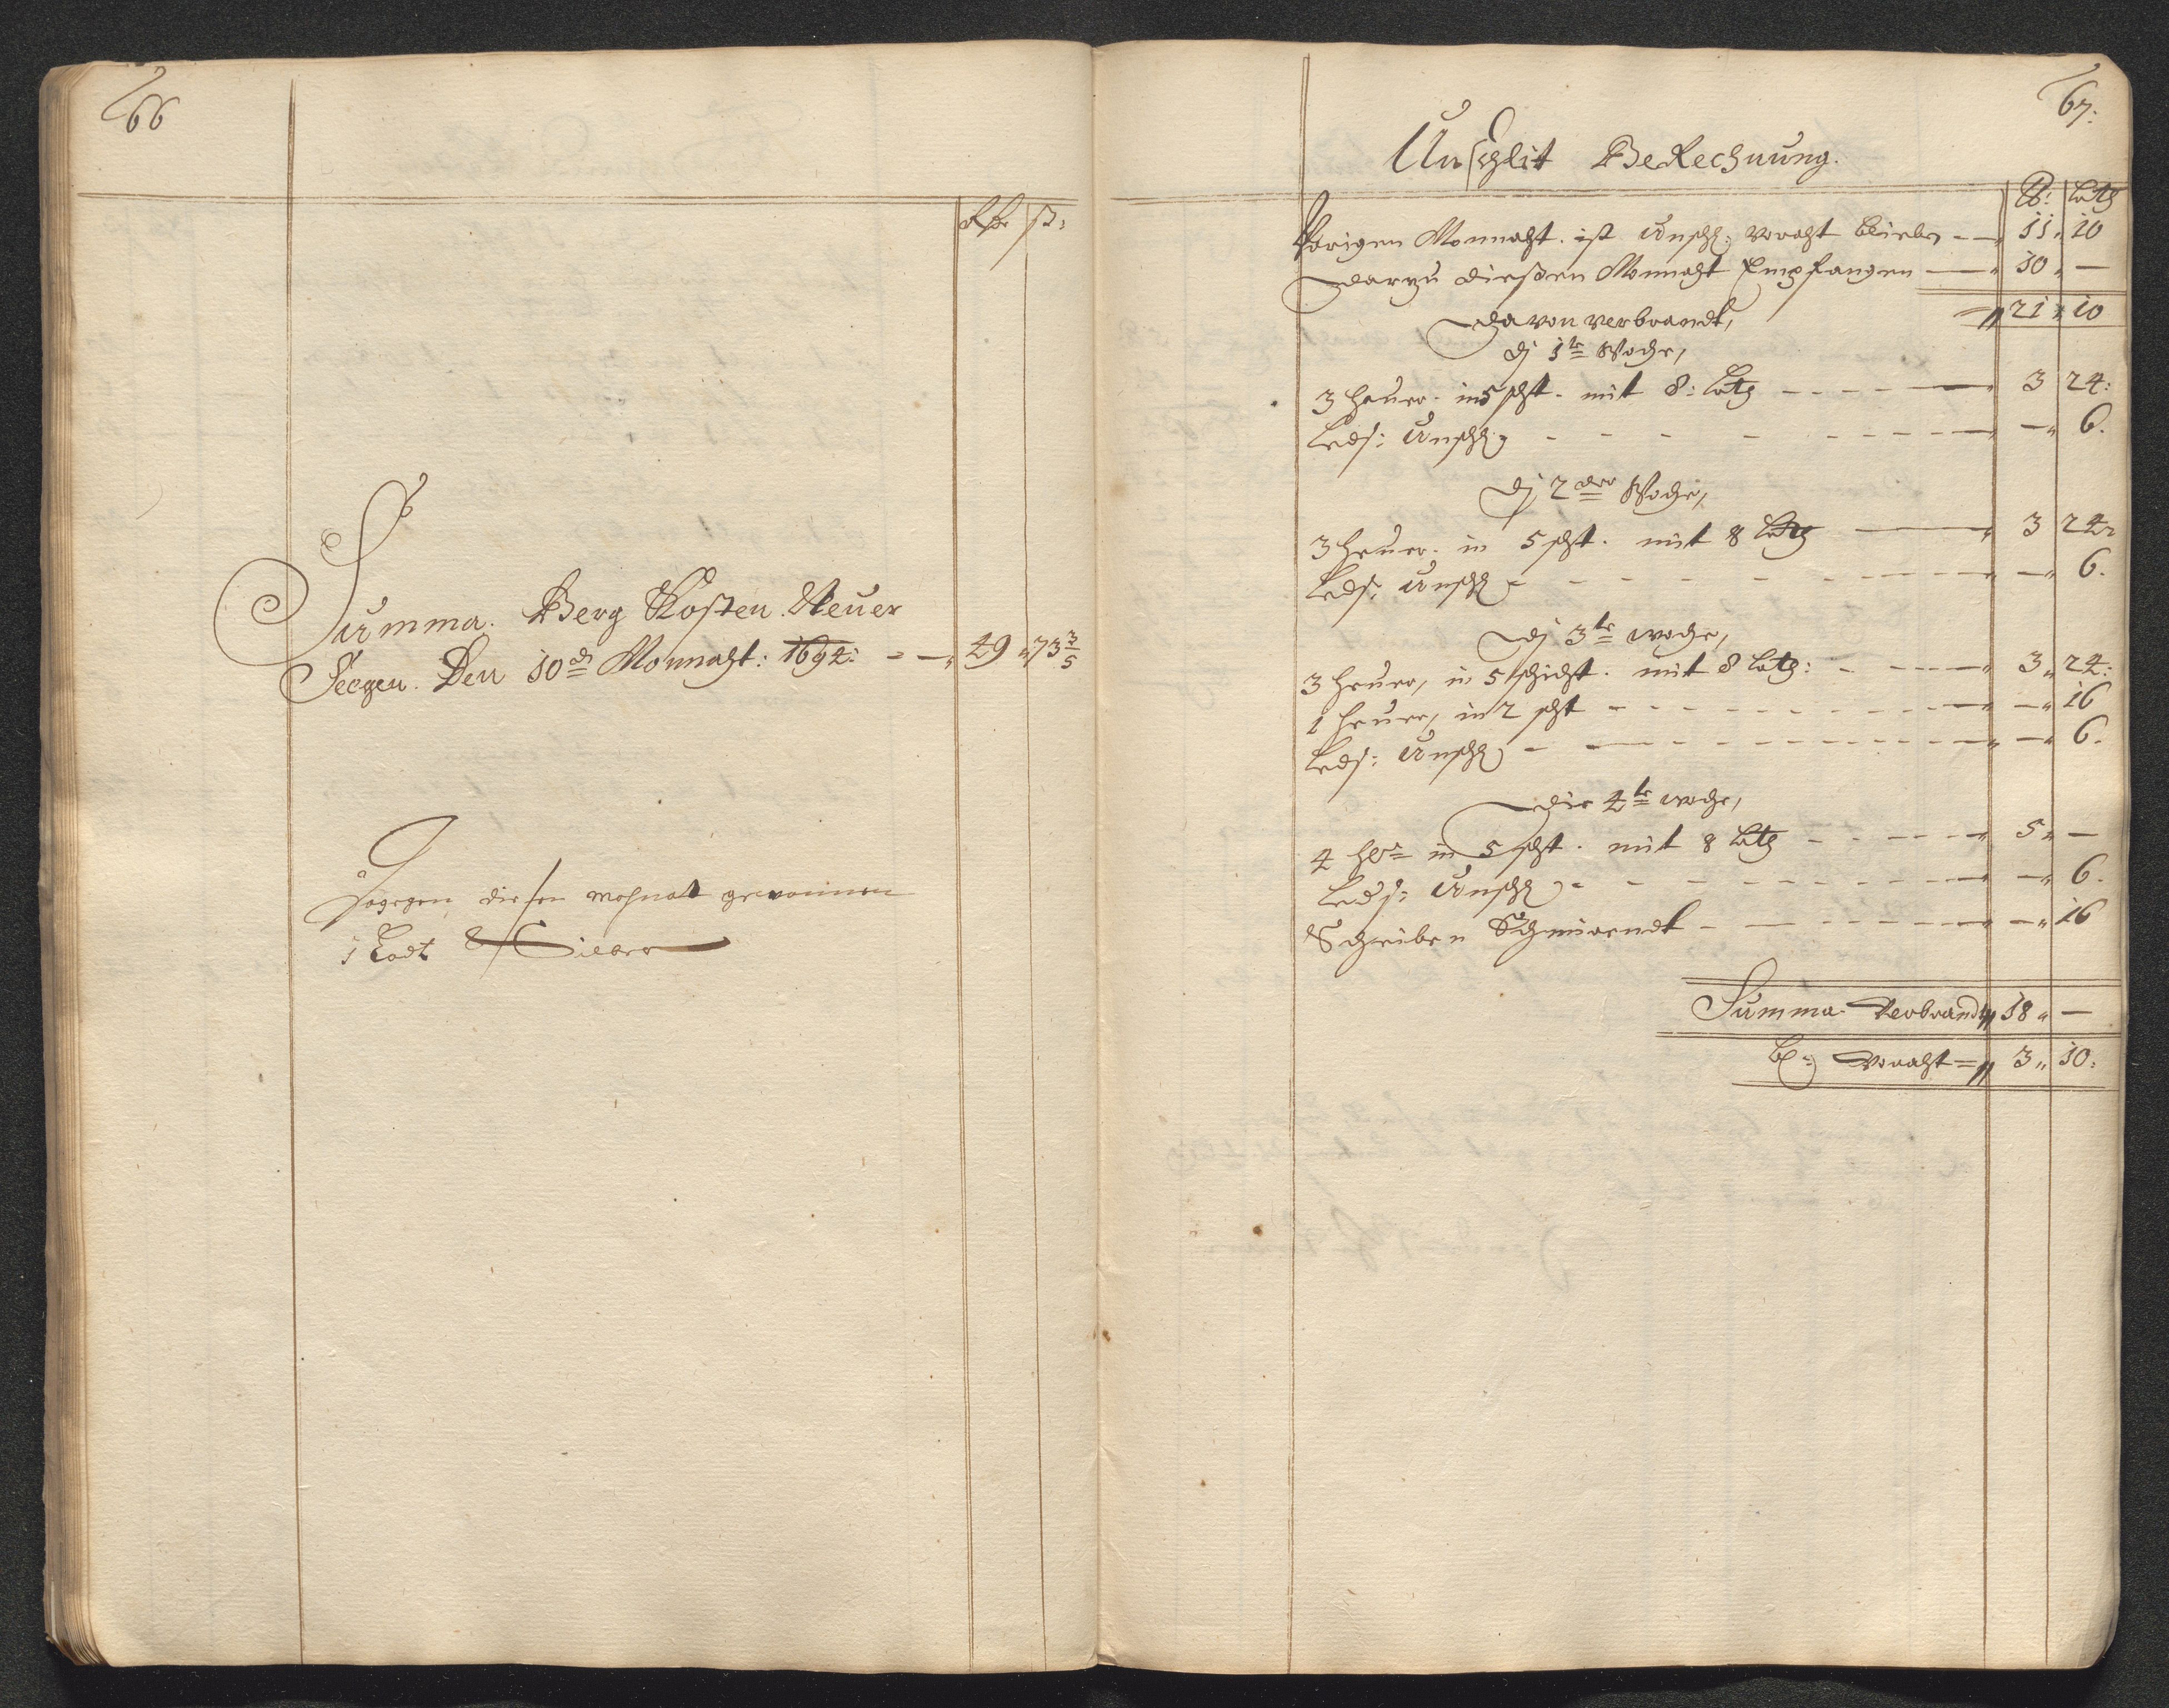 66
Rꝉr ß:
Summa. Berg Kosten. Neuer
Seegen. Den 10 dn Monnaht: 1692: - - 49 " 73 3/5
Dagegen diesen mohnat gewonnen
1 Lodt Silber
67:
Unschlit BeRechnung.
℔: Lotg
Vorigen Monnaht. ist Unschl: Voraht blieben - - 11 " 10
Darzu dießen Monnaht Empfangen - " 10 " -
" 21 " 10
Davon verbrandt,
Dj 1 te Woche,
3 heuer. in 5 scht. mit 8: Lotg - - - - " 3 24:
Leds: Unschl: - - - - - - " - " 6.
Dj 2 der Woche,
3 heuer. in 5 scht. mit 8 Lotg - " 3 24
Leds: Unschl - - - - - - " - " 6.
Dj 3 te woche,
3 heuer, in 5 schicht. mit 8 Lotg: - - - " 3 " 24:
1 heuer, in 2 scht - - - - - - " - " 16
Leds: Unschl - - - - - - " - " 6.
Die 4 te woche,
4 hr in 5 scht. mit 8 Lotg - - - - " 5 " -
Leds: Unschl - - - - - - " - " 6.
Scheiben Schmirendt - - - - " - " 16
Summa. Verbrandt " 18 " -
bl: Voraht = " 3 " 10: